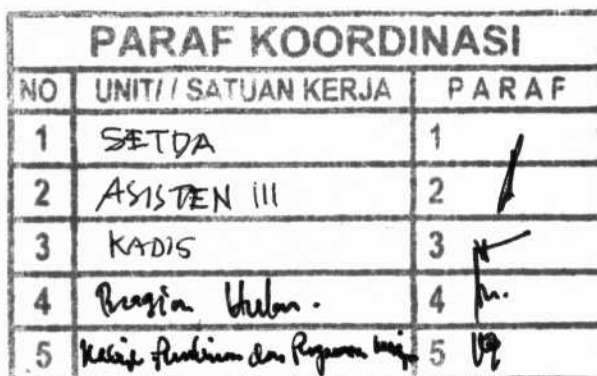 PARAF KOORDINASI
NO UNIT// SATUAN KERJA PARAF
1 SETDA 1
2 ASISTEN III 2
3 KADIS 3
4 Bagian Hukum. 4
5 dan 5